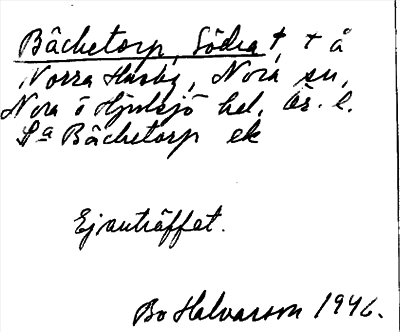 Bäcketorp, Södra †, † å
Norra Husby, Nora sn,
Nora ö Hjulsjö hd, Ör. l.
Sa Bäcketorp ek
Ej anträffat.
Bo Halvarson 1946.